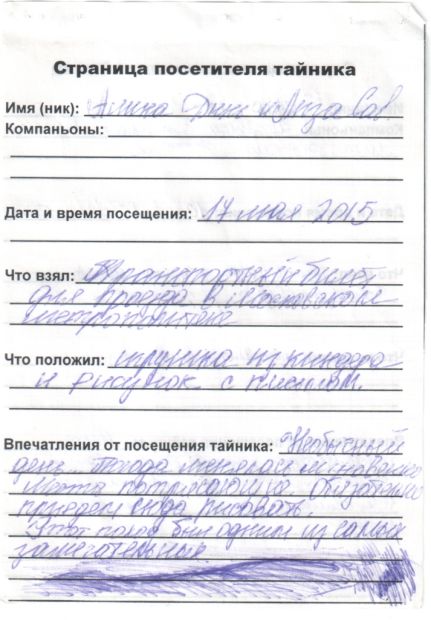 Страница посетителя тайника
Имя (ник): Алина Дин и Лиза Сав
Компаньоны:
Дата и время посещения: 17 мая 2015
Что взял: Транспортный билет
для проезда в Московском
метрополитене
Что положил: игрушка из киндера
и рисунок с письмом.
Впечатления от посещения тайника: "Необычный
день. Погода менялась мгновенно
места потрясающие обязательно
приедем сюда рисовать.
Этот поход был одним из самых
замечательных